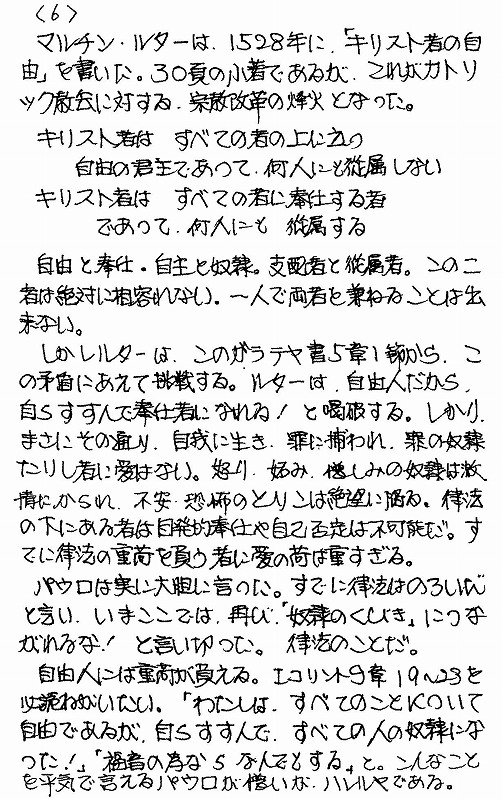 〈6〉
マルチン・ルターは、1528年に、「キリスト者の自
由」を書いた。30頁の小著であるが、これがカトリ
ック教会に対する、宗教改革の烽火となった。
キリスト者は すべての者の上に立つ
自由の君主であって、何人にも従属しない
キリスト者は すべての者に奉仕する者
であって、何人にも 従属する
自由と奉仕・自主と奴隷。支配者と従属者。この二
者は絶対に相容れない。一人で両者を兼ねることは出
来ない。
しかしルターは、このガラテヤ書5章1節から、こ
の矛盾にあえて挑戦する。ルターは、自由人だから、
自らすすんで奉仕者になれる!と喝破する。しかり、
まさにその通り、自我に生き、罪に捕われ、罪の奴隷
たりし者に愛はない。怒り、妬み、憎しみの奴隷は
情にかられ、不安・恐怖のとりこは絶望に陥る。律法
の下にある者は自発的奉仕や自己否定は不可能だ。す
でに律法の重荷を負う者に愛の荷は重すぎる。
パウロは実に大胆に言った。すでに律法はのろいだ
と言い、いまここでは、再び、「奴隷のくびき」につな
がれるな!と言い切った。律法のことだ。
自由人には重荷が負える。Iコリント9章19〜23を
必読ねがいたい。「わたしは、すべてのことについて
自由であるが、自らすすんで、すべての人の奴隷にな
った!」「福音の為なら なんでもする」と。こんなこと
を平気で言えるパウロが憎いな、ハレルヤである。